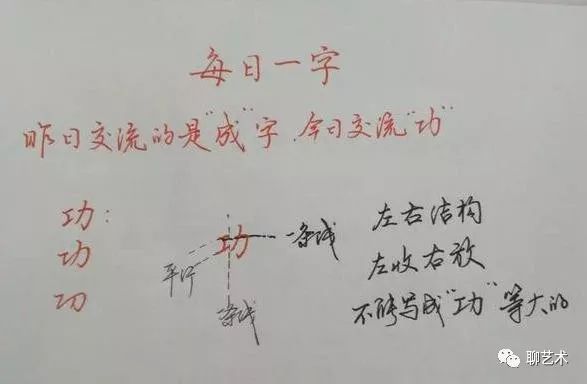 每日一字
昨日交流的是"成"字.今日交流"功"
功:
功
功
功
平行
一条线
一条线
左右结构
左收右放
不能写成"功"等大的
聊艺术